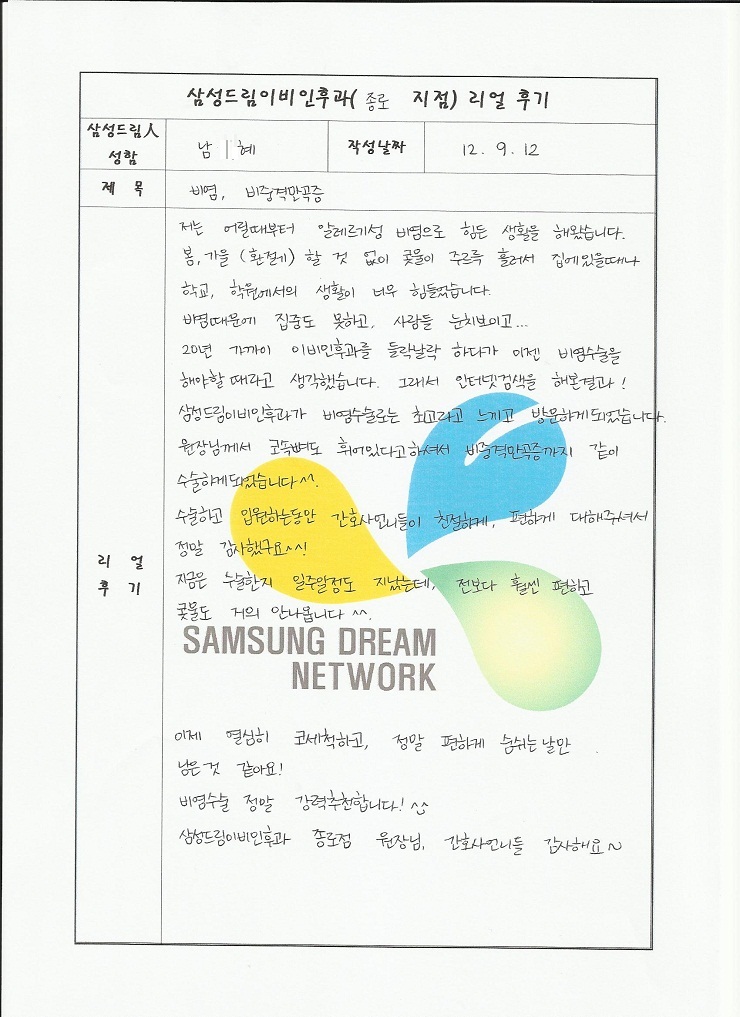 삼성드림이비인후과( 종로 지점) 리얼 후기
삼성드림人 성함
남 혜
작성날짜
12. 9. 12
제 목
비염, 비중격만곡증
리 얼 후 기
저는 어릴때부터 알레르기성 비염으로 힘든 생활을 해왔습니다.
봄, 가을 (환절기) 할 것 없이 콧물이 주르륵 흘러서 집에있을때나
학교, 학원에서의 생활이 너무 힘들었습니다.
비염때문에 집중도 못하고, 사람들 눈치보이고...
20년 가까이 이비인후과를 들락날락 하다가 이젠 비염수술을
해야할 때라고 생각했습니다. 그래서 인터넷검색을 해본결과!
삼성드림이비인후과가 비염수술로는 최고라고 느끼고 방문하게되었습니다.
원장님께서 코속뼈도 휘어있다고하셔서 비중격만곡증까지 같이
수술하게되었습니다^^.
수술하고 입원하는동안 간호사언니들이 친절하게, 편하게 대해주셔서
정말 감사했구요^^!
지금은 수술한지 일주일정도 지났는데, 전보다 훨씬 편하고
콧물도 거의 안나옵니다 ^^.
SAMSUNG DREAM
NETWORK
이제 열심히 코세척하고, 정말 편하게 숨쉬는날만
남은것 같아요!
비염수술 정말 강력추천합니다! ^^
삼성드림이비인후과 종로점 원장님, 간호사언니들 감사해요~